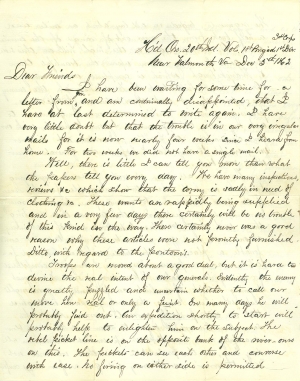 3d Corps
Hd Qrs. 20th Ind. Vols. 1st Brigade 1st Div.
Near Falmouth, Va Dec 5th 1862
Dear Friends
I have been waiting for some time for a
letter from, and am continually disappointed, that I
have at last determined to write again. I have
very little doubt but that the trouble is in our very irregular
mails for it is now nearly four weeks since I heard from
home. For two weeks we did not have a single mail.
Well, there is little I can tell you more than what
the papers tell you every day. We have many inspections,
reviews &c which show that the army is sadly in need of
clothing &c. These wants are rapidly being supplied
and in a very few days there certainly will be no trouble
of this kind in the way. There certainly never was a good
reason why these articles were not promptly furnished,
Ditto with regard to the pontoons.
Troops are moved about a good deal, but it is hard to
divine the real intent of our Generals. Evidently the enemy
is greatly puzzled and uncertain whether to call our
move here real or only a feint. In many days he will
probably find out. An expedition shortly to start will
probably help to enlighten him on the subject. The
rebel picket line is on the opposite bank of the river, ours
on this. The pickets can see each other and converse
with ease. No firing on either side is permitted